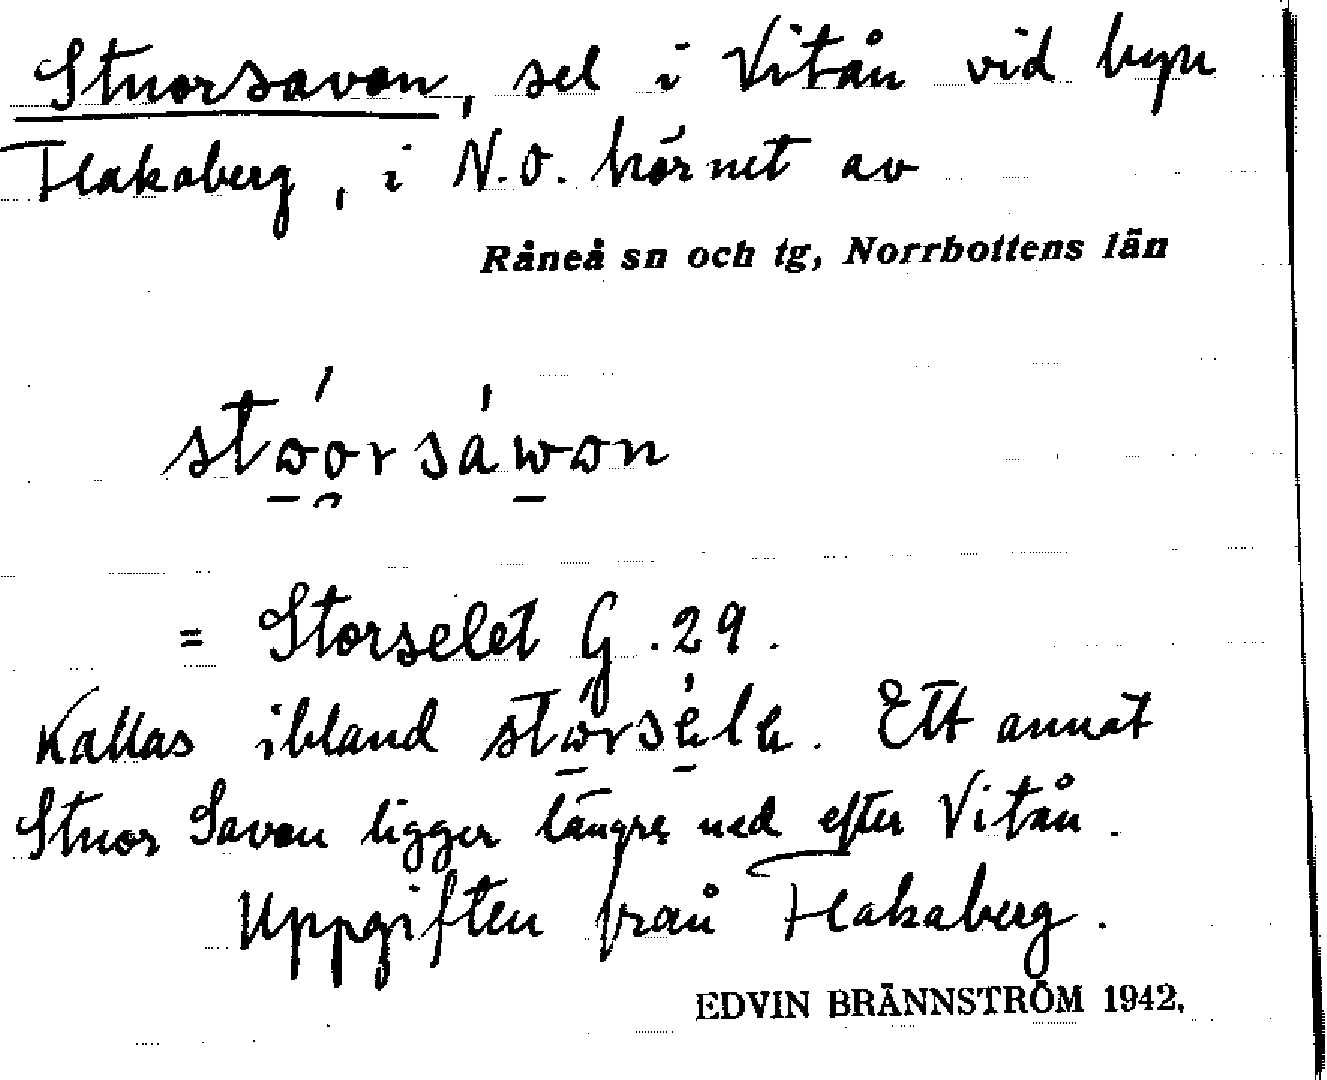 Stuorsavon, sel i Vitån vid byn
Flakaberg, i N.O. hörnet av
Råneå sn och tg, Norrbottens län
stɷ̱́o̯rsáw̱ɷn
= Storselet G. 29.
Kallas ibland stɷ̱́rsé̱le. Ett annat
Stuor Savon ligger längre ned efter Vitån.
Uppgiften från Flakaberg.
EDVIN BRÄNNSTRÖM 1942.